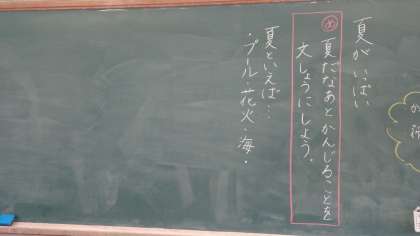 夏がいっぱい
め 夏だなあとかんじることを
文しょうにしよう。
夏といえば…
・プール・花火・海・
か